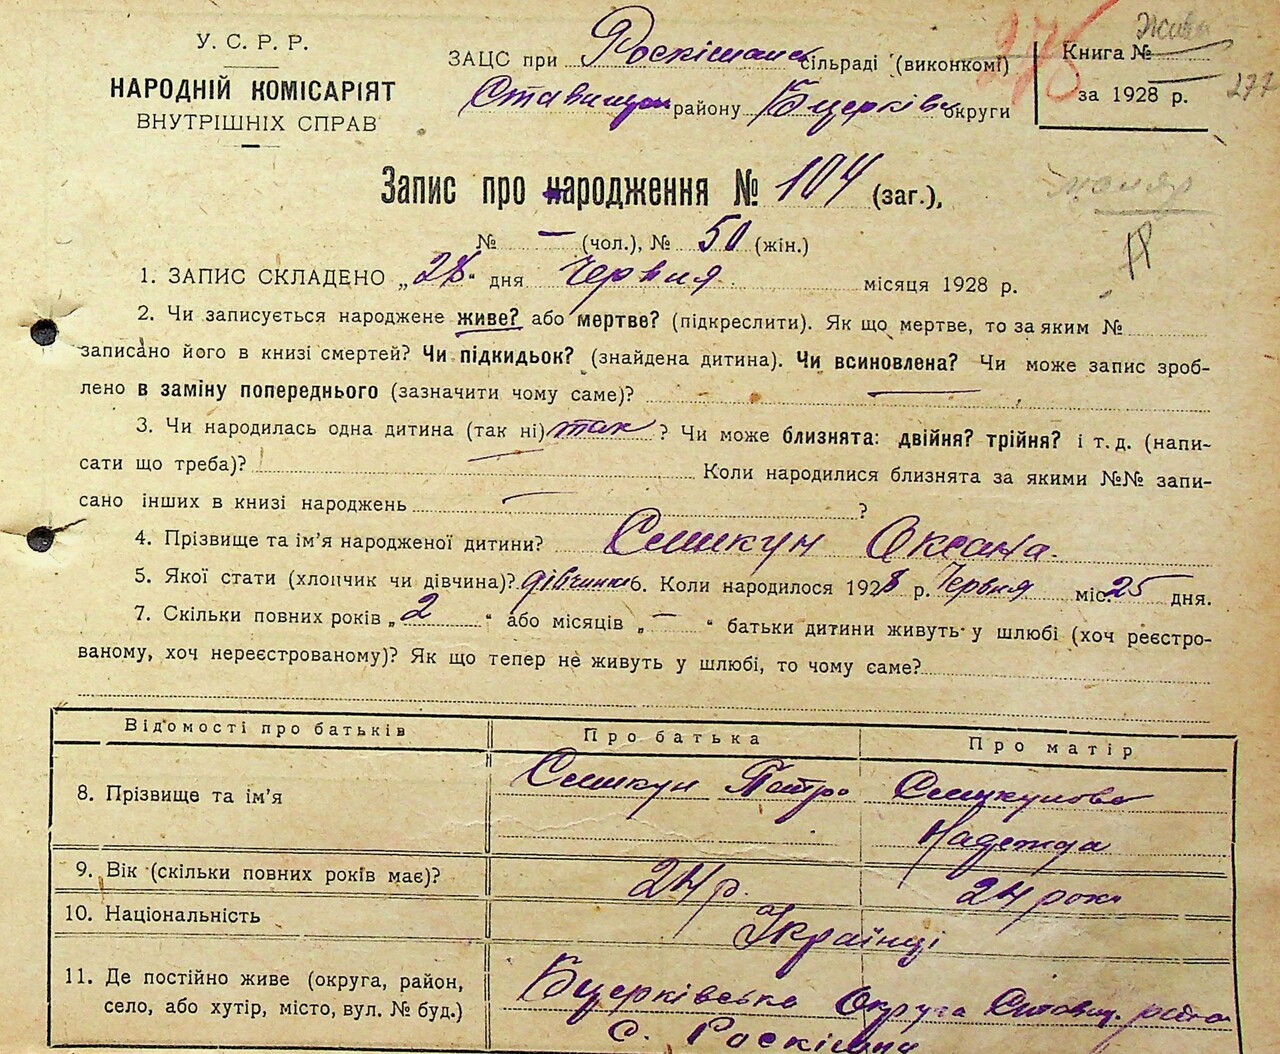 У. С. Р. Р.
НАРОДНІЙ КОМІСАРІЯТ
ВНУТРІШНІХ СПРАВ
ЗАЦС при Роскішанс сільраді (виконкомі)
Ставищан району Бцерківс округи
275
Книга №
за 1928 р.
277
Запис про народження № 104 (заг.),
№ — (чол.), № 50 (жін.)
1. ЗАПИС СКЛАДЕНО „28“ дня Червня місяця 1928 р.
2. Чи записується народжене живе? або мертве? (підкреслити). Як що мертве, то за яким №
записано його в книзі смертей? Чи підкидьок? (знайдена дитина). Чи всиновлена? Чи може запис зроб-
лено в заміну попереднього (зазначити чому саме)? —
3. Чи народилась одна дитина (так ні) так ? Чи може близнята: двійня? трійня? і т. д. (напи-
сати що треба)? Коли народилися близнята за якими №№ запи-
сано інших в книзі народжень — ?
4. Прізвище та ім’я народженої дитини? Сишкун Оксана.
5. Якої стати (хлопчик чи дівчина)? дівчинка 6. Коли народилося 1928 р. Червня міс. 25 дня.
7. Скільки повних років „2“ або місяців „—“ батьки дитини живуть у шлюбі (хоч реєстро-
ваному, хоч нереєстрованому)? Як що тепер не живуть у шлюбі, то чому саме?
Відомості про батьків Про батька Про матір
8. Прізвище та ім’я Сишкун Петро Сишкунова
Надежда
9. Вік (скільки повних років має)? 24 р. 24 роки
10. Національність Українці
11. Де постійно живе (округа, район, Бцерківська Округа Ставищ. район
село, або хутір, місто, вул. № буд.) с. Роскішна